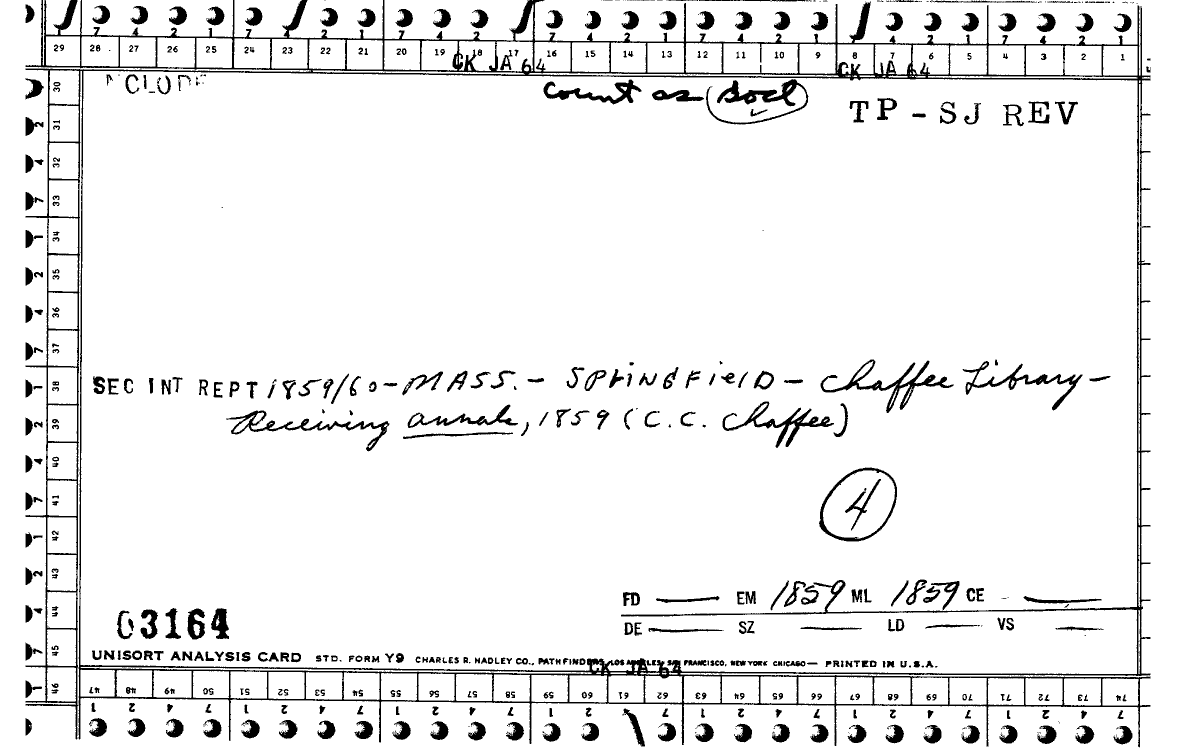 7 4 2 1 7 4 2 1 7 4 2 1 7 4 2 1 7 4 2 1 7 4 2 1 7 4 2 1
29 28 27 26 25 24 23 22 21 20 19 18 17 16 15 14 13 12 11 10 9 8 7 6 5 4 3 2 1
CK JA 64 CK JA 64
count as socl
TP - SJ REV
30
2 31
4 32
7 33
1 34
2 35
4 36
7 37
1 38
2 39
4 40
7 41
1 42
2 43
4 44
7 45
1 46
SEC INT REPT 1859/60 - MASS. - SPRINGFIELD - Chaffee Library -
Receiving annals, 1859 (C.C. Chaffee)
4
FD — EM 1859 ML 1859 CE —
DE — SZ — LD — VS —
03164
UNISORT ANALYSIS CARD STD. FORM Y9 CHARLES R. HADLEY CO., PATHFINDERS, LOS ANGELES, SAN FRANCISCO, NEW YORK CHICAGO — PRINTED IN U.S.A.
CK JA 64
47 48 49 50 51 52 53 54 55 56 57 58 59 60 61 62 63 64 65 66 67 68 69 70 71 72 73 74
1 2 4 7 1 2 4 7 1 2 4 7 1 2 7 1 2 4 7 1 2 4 7 1 2 4 7